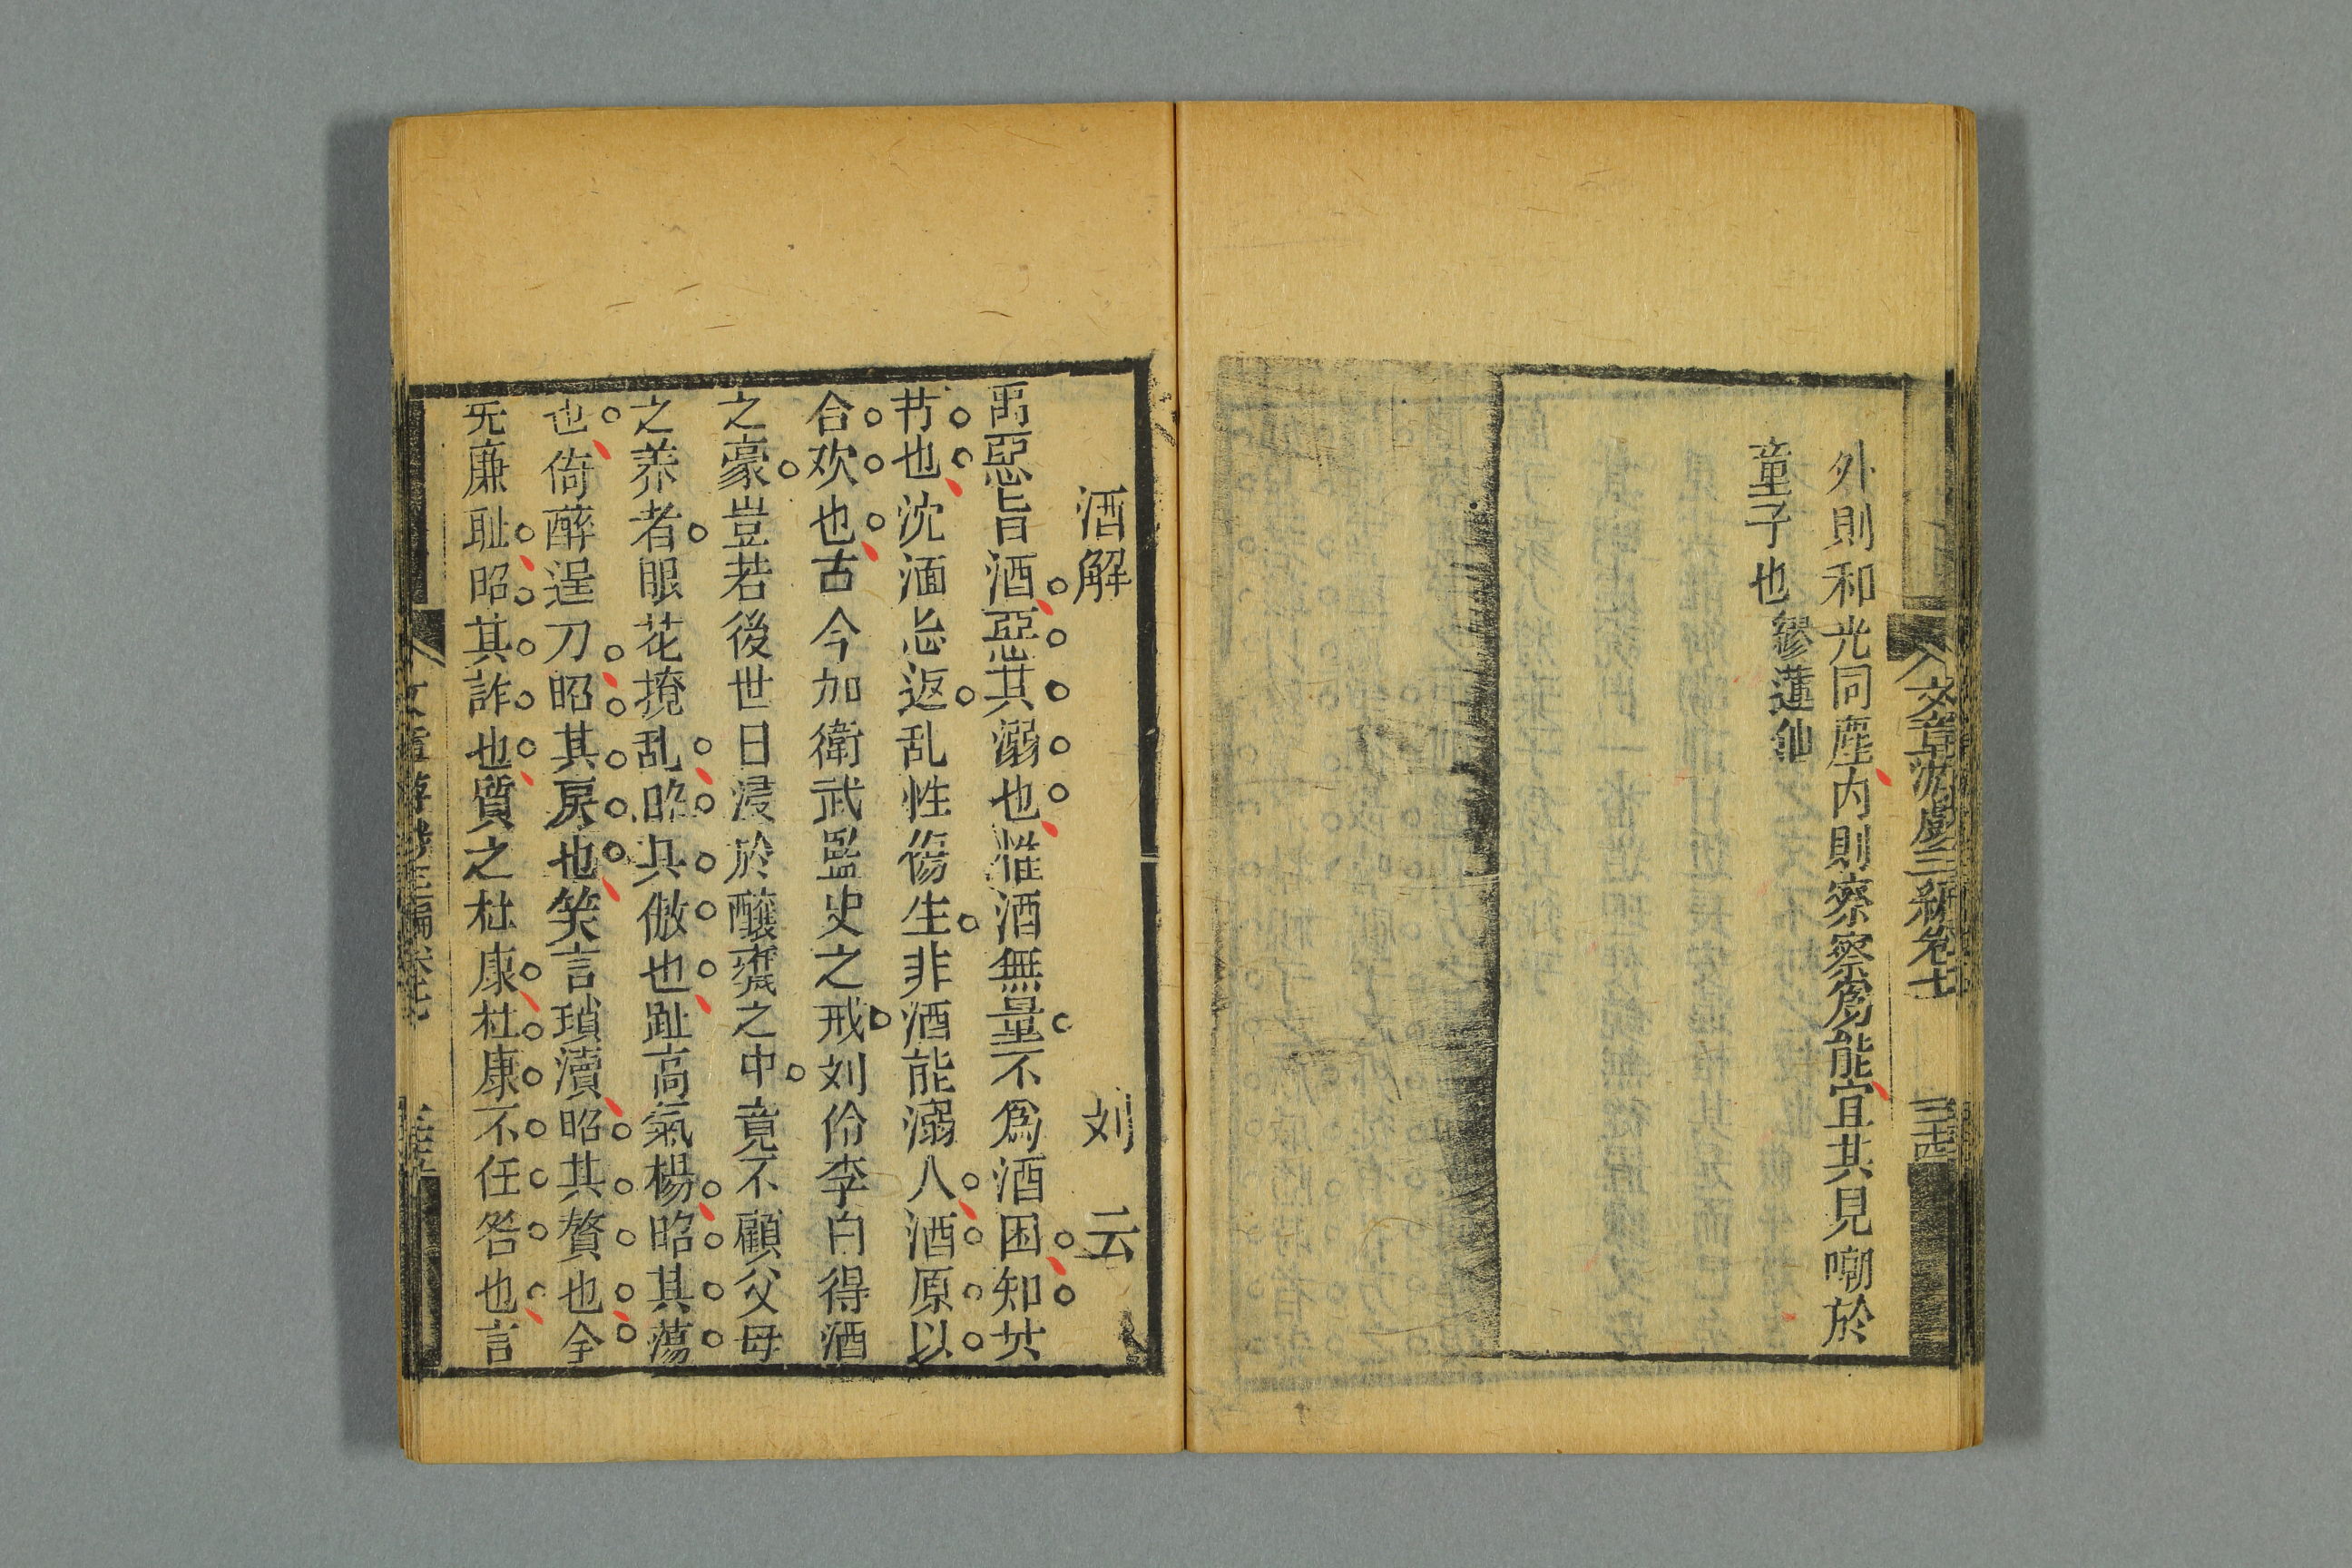 文章游戲三編卷七
三十四
外則和光同塵内則察察爲能宜其見嘲於
童子也繆蓮仙
酒解 刘云
禹惡旨酒惡其溺也惟酒無量不爲酒困知其
节也沈湎忘返乱性傷生非酒能溺人酒原以
合欢也古今加衛武監史之戒刘伶李白得酒
之豪豈若後世日浸於釀虀之中竟不顧父母
之养者眼花撩乱昭其倣也趾高氣楊昭其蕩
也倚醉逞刀昭其房也笑言瑣瀆昭其贅也全
旡廉耻昭其詐也質之杜康杜康不任咎也言